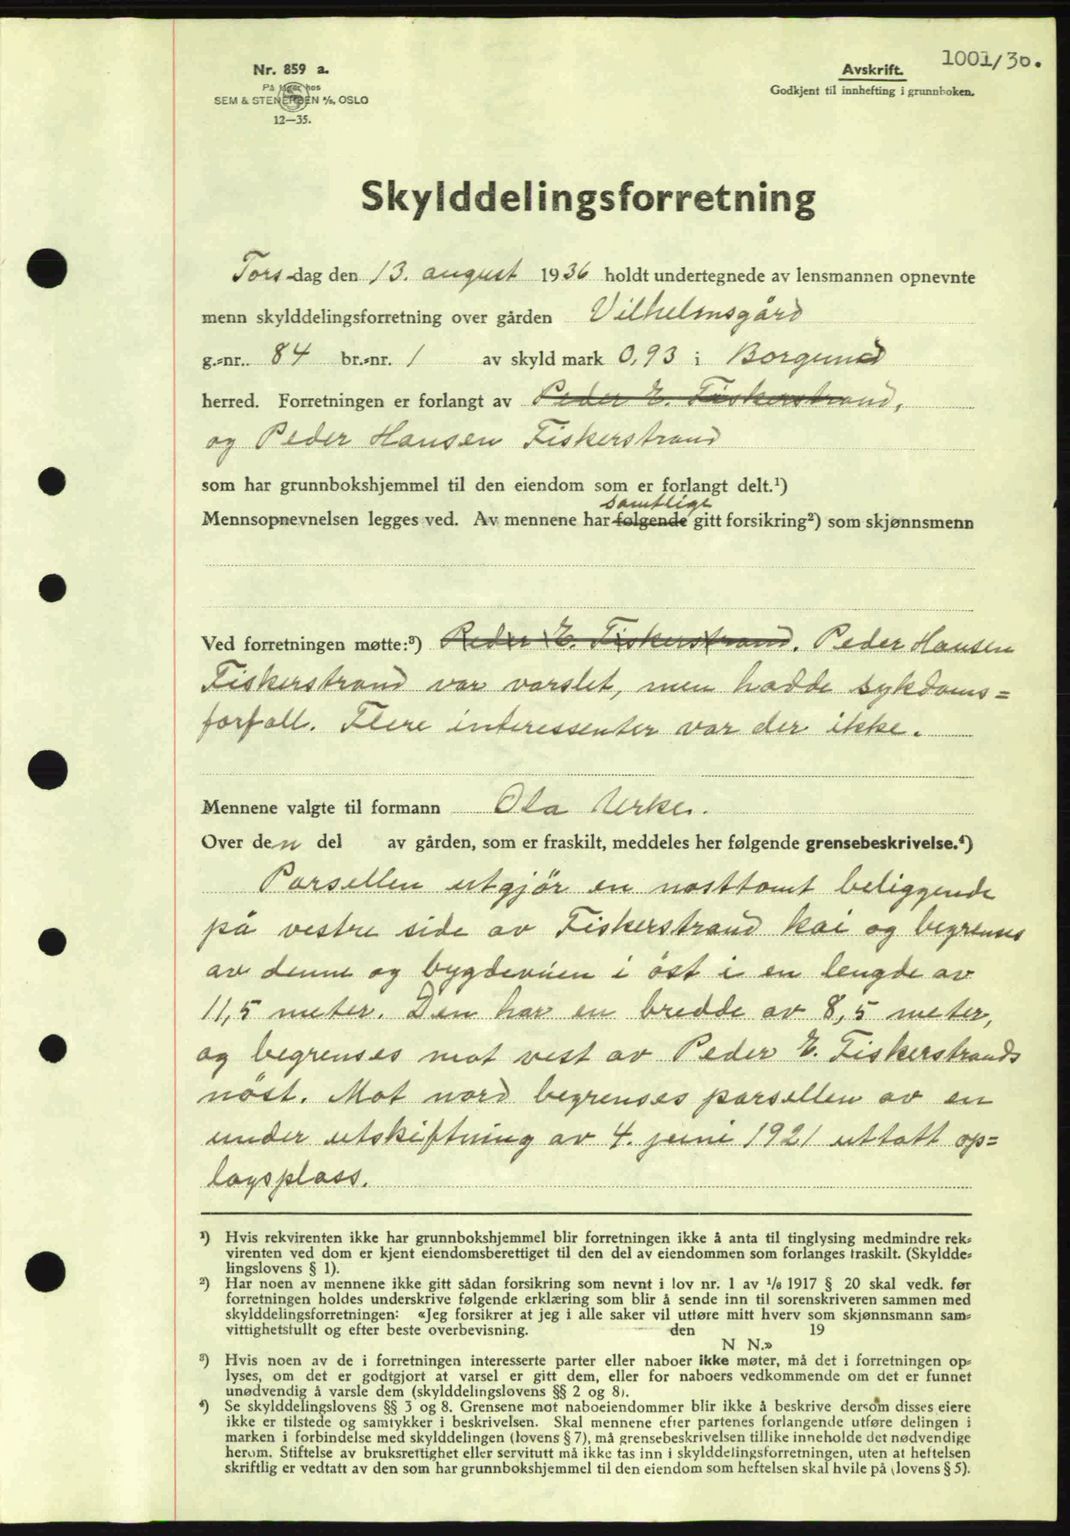 1001/36.
Nr. 859 a.
På lager hos
SEM & STENERSEN A/S, OSLO
12—35.
Avskrift.
Godkjent til innhefting i grunnboken.
Skylddelingsforretning
Torsdag den 13. august 1936 holdt undertegnede av lensmannen opnevnte
menn skylddelingsforretning over gården Vilhelmsgård
g.-nr.. 84 br.-nr. 1 av skyld mark 0,93 i Borgund
herred. Forretningen er forlangt av Peder E. Fiskerstrand,
og Peder Hansen Fiskerstrand
som har grunnbokshjemmel til den eiendom som er forlangt delt.¹)
samtlige
Mennsopnevnelsen legges ved. Av mennene har følgende gitt forsikring²) som skjønnsmenn
Ved forretningen møtte:³) Peder E. Fiskerstrand. Peder Hansen
Fiskerstrand var varslet, men hadde sykdoms=
forfall. Flere interessenter var der ikke.
Mennene valgte til formann Ola Urke.
Over den del av gården, som er fraskilt, meddeles her følgende grensebeskrivelse.⁴)
Parsellen utgjör en nosttomt beliggende
på vestre side av Fiskerstrand kai og begrenses
av denne og bygdeveien i öst i en lengde av
11,5 meter. Den har en bredde av 8,5 meter,
og begrenses mot vest av Peder E. Fiskerstrands
nöst. Mot nord begrenses parsellen av en
under utskiftning av 4. juni 1921 uttatt op=
lagsplass.
¹) Hvis rekvirenten ikke har grunnbokshjemmel blir forretningen ikke å anta til tinglysing medmindre rek-
virenten ved dom er kjent eiendomsberettiget til den del av eiendommen som forlanges fraskilt. (Skyldde-
lingslovens § 1).
²) Har noen av mennene ikke gitt sådan forsikring som nevnt i lov nr. 1 av 1/6 1917 § 20 skal vedk. før
forretningen holdes underskrive følgende erklæring som blir å sende inn til sorenskriveren sammen med
skylddelingsforretningen: «Jeg forsikrer at jeg i alle saker vil utføre mitt hverv som skjønnsmann sam-
vittighetsfullt og efter beste overbevisning. den 19
N N.»
³) Hvis noen av de i forretningen interesserte parter eller naboer ikke møter, må det i forretningen op-
lyses, om det er godtgjort at varsel er gitt dem, eller for naboers vedkommende om det er funnet
unødvendig å varsle dem (skylddelingslovens §§ 2 og 8).
⁴) Se skylddelingslovens §§ 3 og 8. Grensene mot naboeiendommer blir ikke å beskrive dersom disses eiere
ikke er tilstede og samtykker i beskrivelsen. Skal mennene efter partenes forlangende utføre delingen i
marken i forbindelse med skylddelingen (lovens § 7), må grensebeskrivelsen tillike inneholde det nødvendige
herom. Stiftelse av bruksrettighet eller servitutt må ikke tas inn i skylddelingsforretningen, uten at heftelsen
skriftlig er vedtatt av den som har grunnbokshjemmel til den eiendom som heftelsen skal hvile på (lovens § 5).